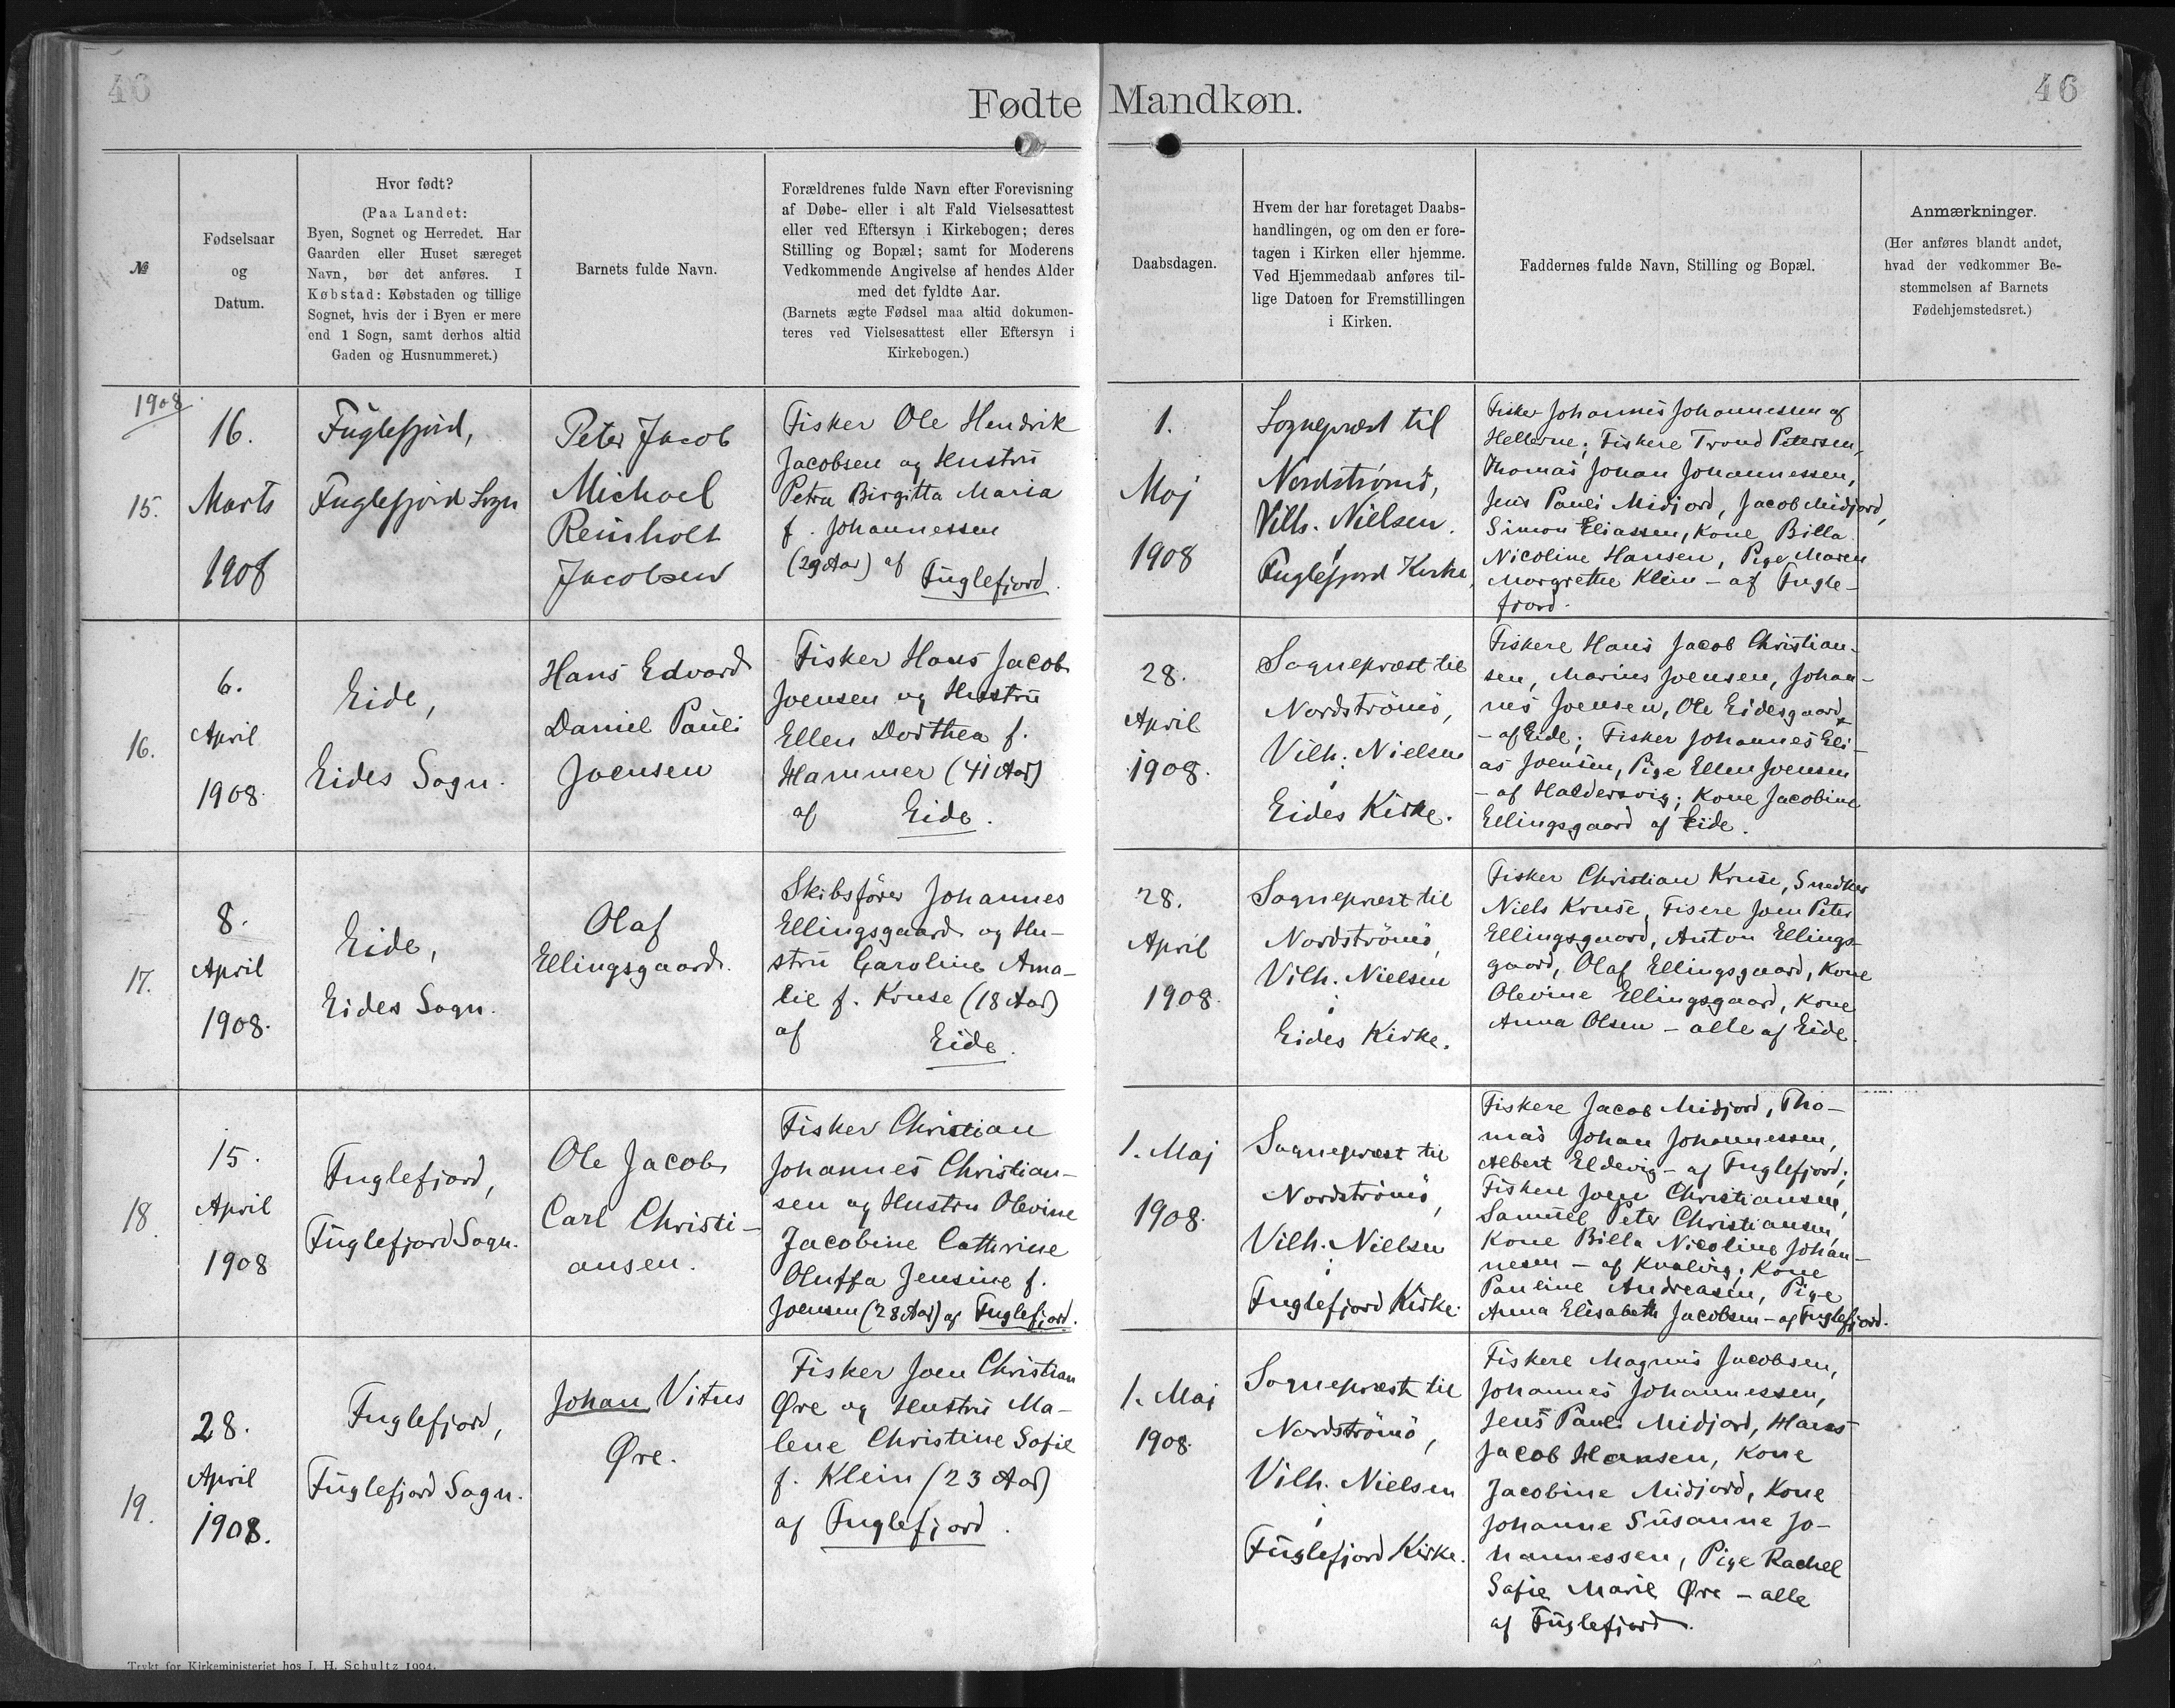 46
46
Fødte Mandkøn.
№
Fødselsaar
og
Datum.
Hvor født?
(Paa Landet:
Byen, Sognet og Herredet. Har
Gaarden eller Huset særeget
Navn, bør det anføres. I
Købstad: Købstaden og tillige
Sognet, hvis der i Byen er mere
end 1 Sogn, samt derhos altid
Gaden og Husnummeret.)
Barnets fulde Navn.
Forældrenes fulde Navn efter Forevisning
af Døbe- eller i alt Fald Vielsesattest
eller ved Eftersyn i Kirkebogen; deres
Stilling og Bopæl; samt for Moderens
Vedkommende Angivelse af hendes Alder
med det fyldte Aar.
(Barnets ægte Fødsel maa altid dokumen-
teres ved Vielsesattest eller Eftersyn i
Kirkebogen.)
Daabsdagen.
Hvem der har foretaget Daabs-
handlingen, og om den er fore-
tagen i Kirken eller hjemme.
Ved Hjemmedaab anføres til-
lige Datoen for Fremstillingen
i Kirken.
Faddernes fulde Navn, Stilling og Bopæl.
Anmærkninger.
(Her anføres blandt andet,
hvad der vedkommer Be-
stemmelsen af Barnets
Fødehjemstedsret.)
1908
15.
16.
Marts
1908
Fuglefjord,
Fuglefjord Sogn
Peter Jacob
Michael
Reinholt
Jacobsen
Fisker Ole Hendrik
Jacobsen og Hustru
Petra Birgitta Maria
f. Johannessen
(29 Aar) af Fuglefjord.
1.
Maj
1908
Sognepræst til
Nordstrømø,
Vilh. Nielsen.
i
Fuglefjord Kirke,
Fisker Johannes Johannessen af
Hellerne; Fiskere Trond Petersen,
Thomas Johan Johannessen,
Jens Pauli Midjord, Jacob Midjord,
Simon Eliassen, Kone Billa
Nicoline Hansen, Pige Maren
Margrethe Klein - af Fugle-
fjord.
16.
6.
April
1908.
Eide,
Eides Sogn.
Hans Edvard
Daniel Pauli
Joensen
Fisker Hans Jacob
Joensen og Hustru
Ellen Dorthea f.
Hammer (41 Aar)
af Eide.
28.
April
1908.
Sognepræst til
Nordströmö,
Vilh. Nielsen
i
Eides Kirke.
Fiskere Hans Jacob Christian-
sen, Marius Joensen, Johan-
nes Joensen, Ole Eidesgaard
- af Eide; Fisker Johannes Eli-
as Joensen, Pige Ellen Joensen
- af Haldersvig; Kone Jacobine
Ellingsgaard af Eide.
17.
8.
April
1908.
Eide,
Eides Sogn.
Olaf
Ellingsgaard.
Skibsfører Johannes
Ellingsgaard og Hu-
stru Caroline Ama-
lie f. Kruse (18 Aar)
af Eide.
28.
April
1908.
Sognepræst til
Nordströmö,
Vilh. Nielsen
i
Eides Kirke.
Fisker Christian Kruse, Snedker
Niels Kruse, Fisere Joen Peter
Ellingsgaard, Anton Ellings-
gaard, Olaf Ellingsgaard, Kone
Olevine Ellingsgaard, Kone
Anna Olsen - alle af Eide.
18.
15.
April
1908
Fuglefjord,
Fuglefjord Sogn.
Ole Jacob
Carl Christi-
ansen.
Fisker Christian
Johannes Christian-
sen og Hustru Olevine
Jacobine Cathrine
Oluffa Jensine f.
Joensen (28 Aar) af Fuglefjord.
1. Maj
1908.
Sognepræst til
Nordströmö,
Vilh. Nielsen
i
Fuglefjord Kirke.
Fiskere Jacob Midjord, Tho-
mas Johan Johannessen,
Albert Eldevig - af Fuglefjord;
Fiskere Joen Christiansen,
Samuel Peter Christiansen,
Kone Billa Nicoline Johan-
nesen - af Kvalvig; Kone
Pauline Andreasen, Pige
Anna Elisabeth Jacobsen - af Fuglefjord.
19.
28.
April
1908.
Fuglefjord,
Fuglefjord Sogn.
Johan Vitus
Øre.
Fisker Joen Christian
Øre og Hustru Ma-
lene Christine Sofie
f. Klein (23 Aar)
af Fuglefjord.
1. Maj
1908.
Sognepræst til
Nordströmö,
Vilh. Nielsen
i
Fuglefjord Kirke.
Fiskere Magnus Jacobsen,
Johannes Johannessen,
Jens Pauli Midjord, Hans
Jacob Hansen, Kone
Jacobine Midjord, Kone
Johanne Susanne Jo-
hannessen, Pige Rachel
Sofie Marie Øre - alle
af Fuglefjord.
Trykt for Kirkeministeriet hos J. H. Schultz 1904.